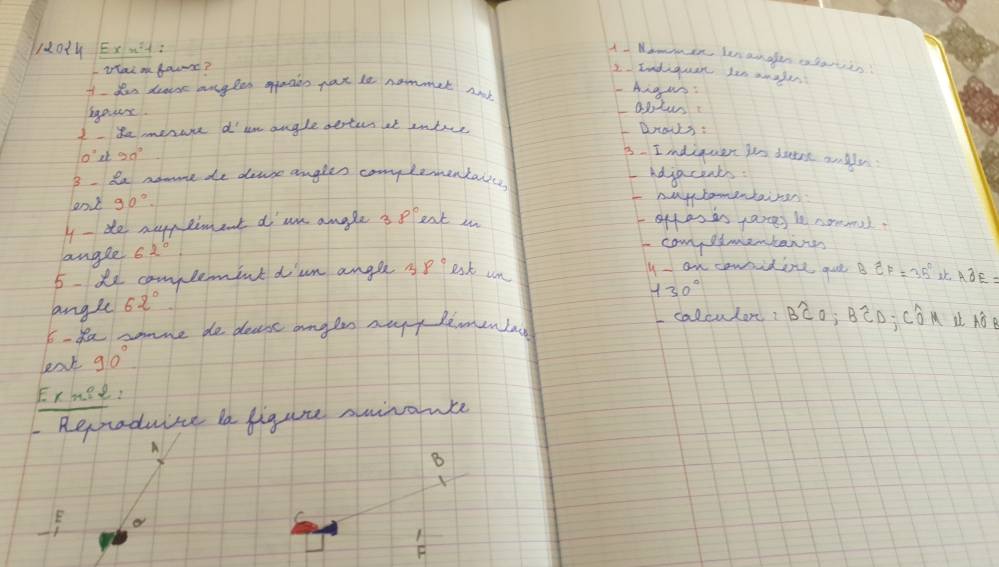 /2024 Ex n°1:
- Vrai ou faux?
1 - Les deux angles opposés par le sommet sont
égaux.
2 - La mesure d'un angle obtus et entre
0° et 90°.
3 - La somme de deux angles complementaires
est 90°.
4 - Le supplément d'un angle 38° est un
angle 62°
5 - Le complemént d'un angle 38° est un
angle 62°.
6 - La somme de deux angles supplémentai
est 90°.
Ex n°2:
- Reproduire la figure suivante
A
B
E
O
C
F
1 - Nommer les angles colories:
2 - Indiquer les angles:
- Aigus:
- Obtus:
- Droits:
3 - Indiquer les deux angles:
- Adjacents:
- supplementaires:
- opposés par le sommet:
- complémentaires
4 - on considére que BĈF = 35° et AÔE =
130°
- calculer: BĈO; BĈD; CÔM et AÔB